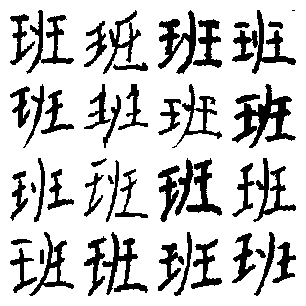 班班班班
班班班班
班班班班
班班班班